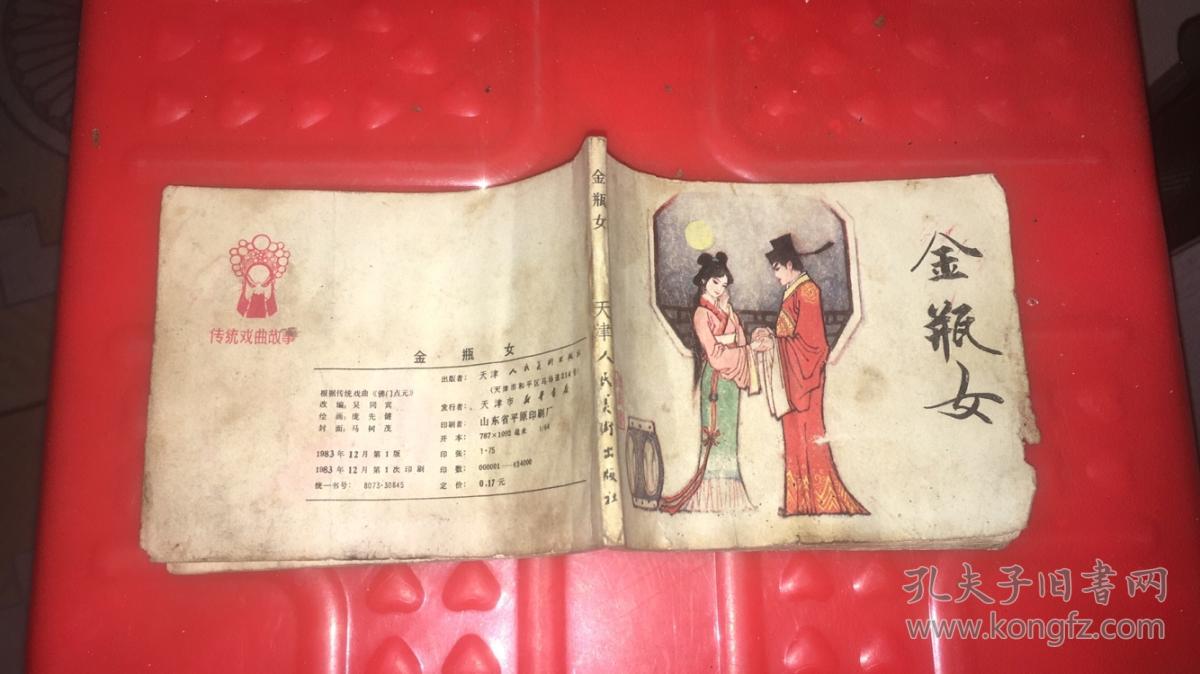 传统戏曲故事
金 瓶 女
根据传统戏曲《佛门点元》
改 编：吴同宾
绘 画：庞先健
封 面：马树茂
1983年12月第1版
1983年12月第1次印刷
统一书号：8073·30645
出版者：天津人民美术出版社
（天津市和平区马场道214号）
发行者：天津市新华书店
印刷者：山东省平原印刷厂
开 本：787×1092毫米 1/64
印 张：1·75
印 数：000001—834000
定 价：0.17元
金瓶女 天津人民美术出版社
金瓶女
孔夫子旧書网
www.kongfz.com